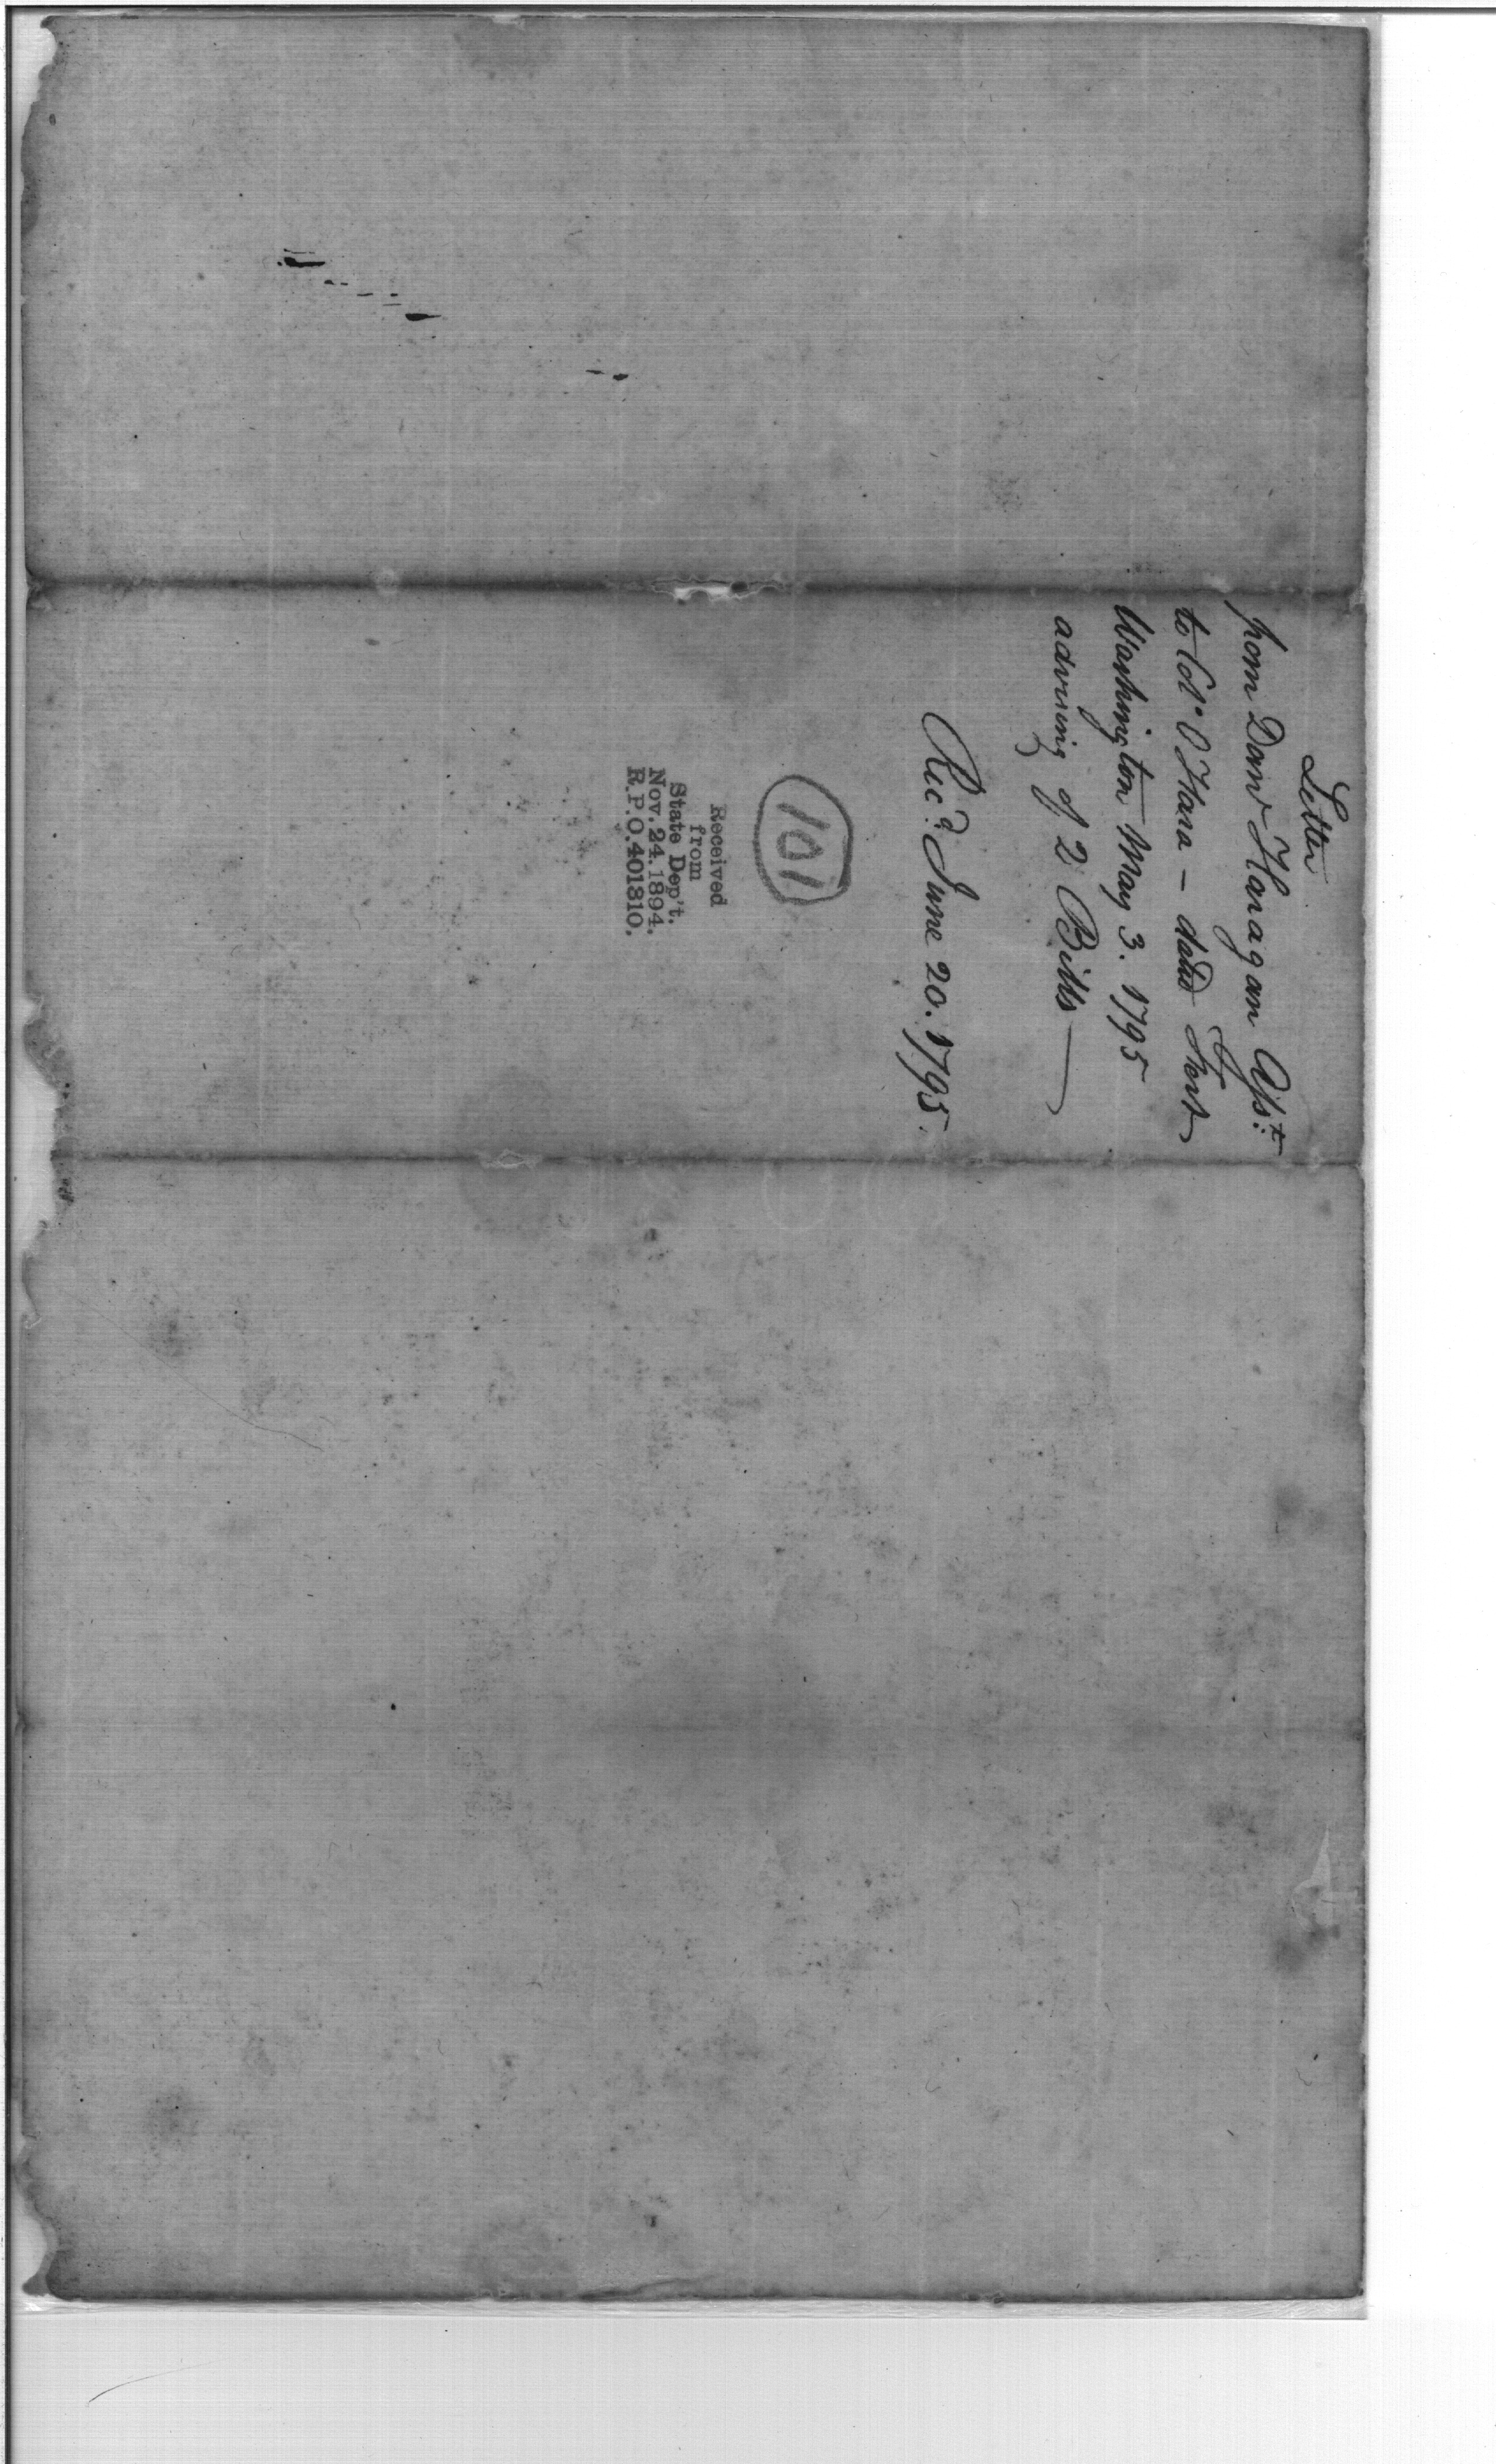 Letter
from David Haragan Asst:
to Col. O Hara - dated Fort
Washington May 3. 1795
advising of 2 Bills
Recd. June 20. 1795.
101
Received
from
State Dep't.
Nov. 24. 1894.
R.P.O. 401310.